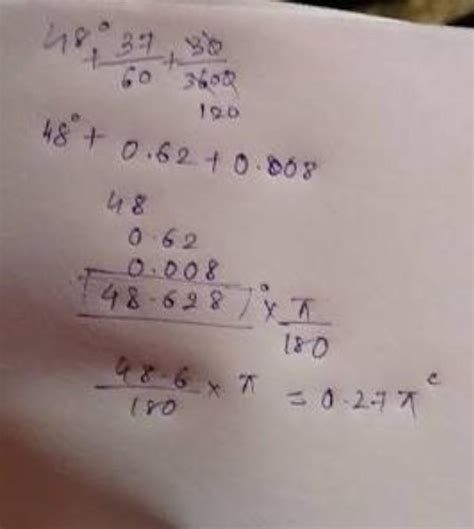 48° + 37/60 + 30/3600
120
48° + 0.62 + 0.008
48
0.62
0.008
48.628° × π/180
48.6/180 × π = 0.27π^c